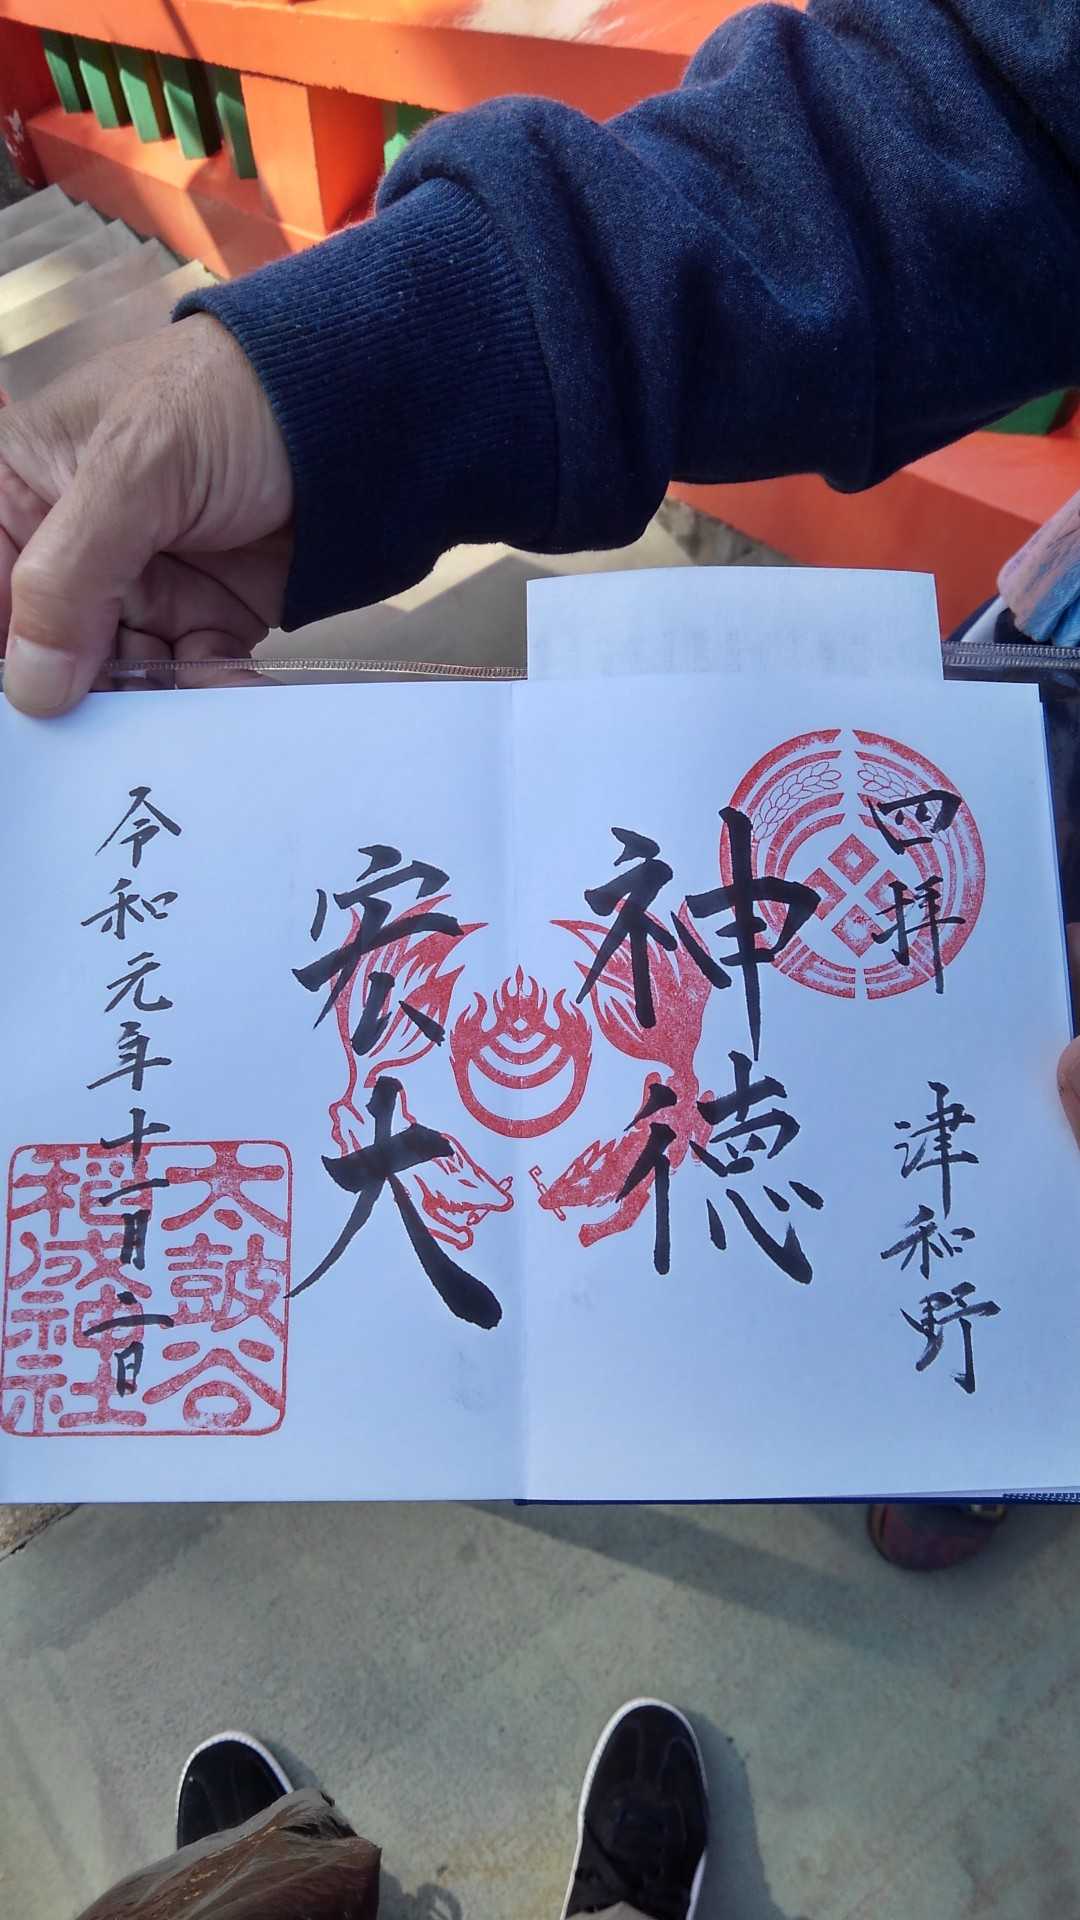 四拝 津和野
神徳
宏大
令和元年十一月二日
太鼓谷
稲成神社